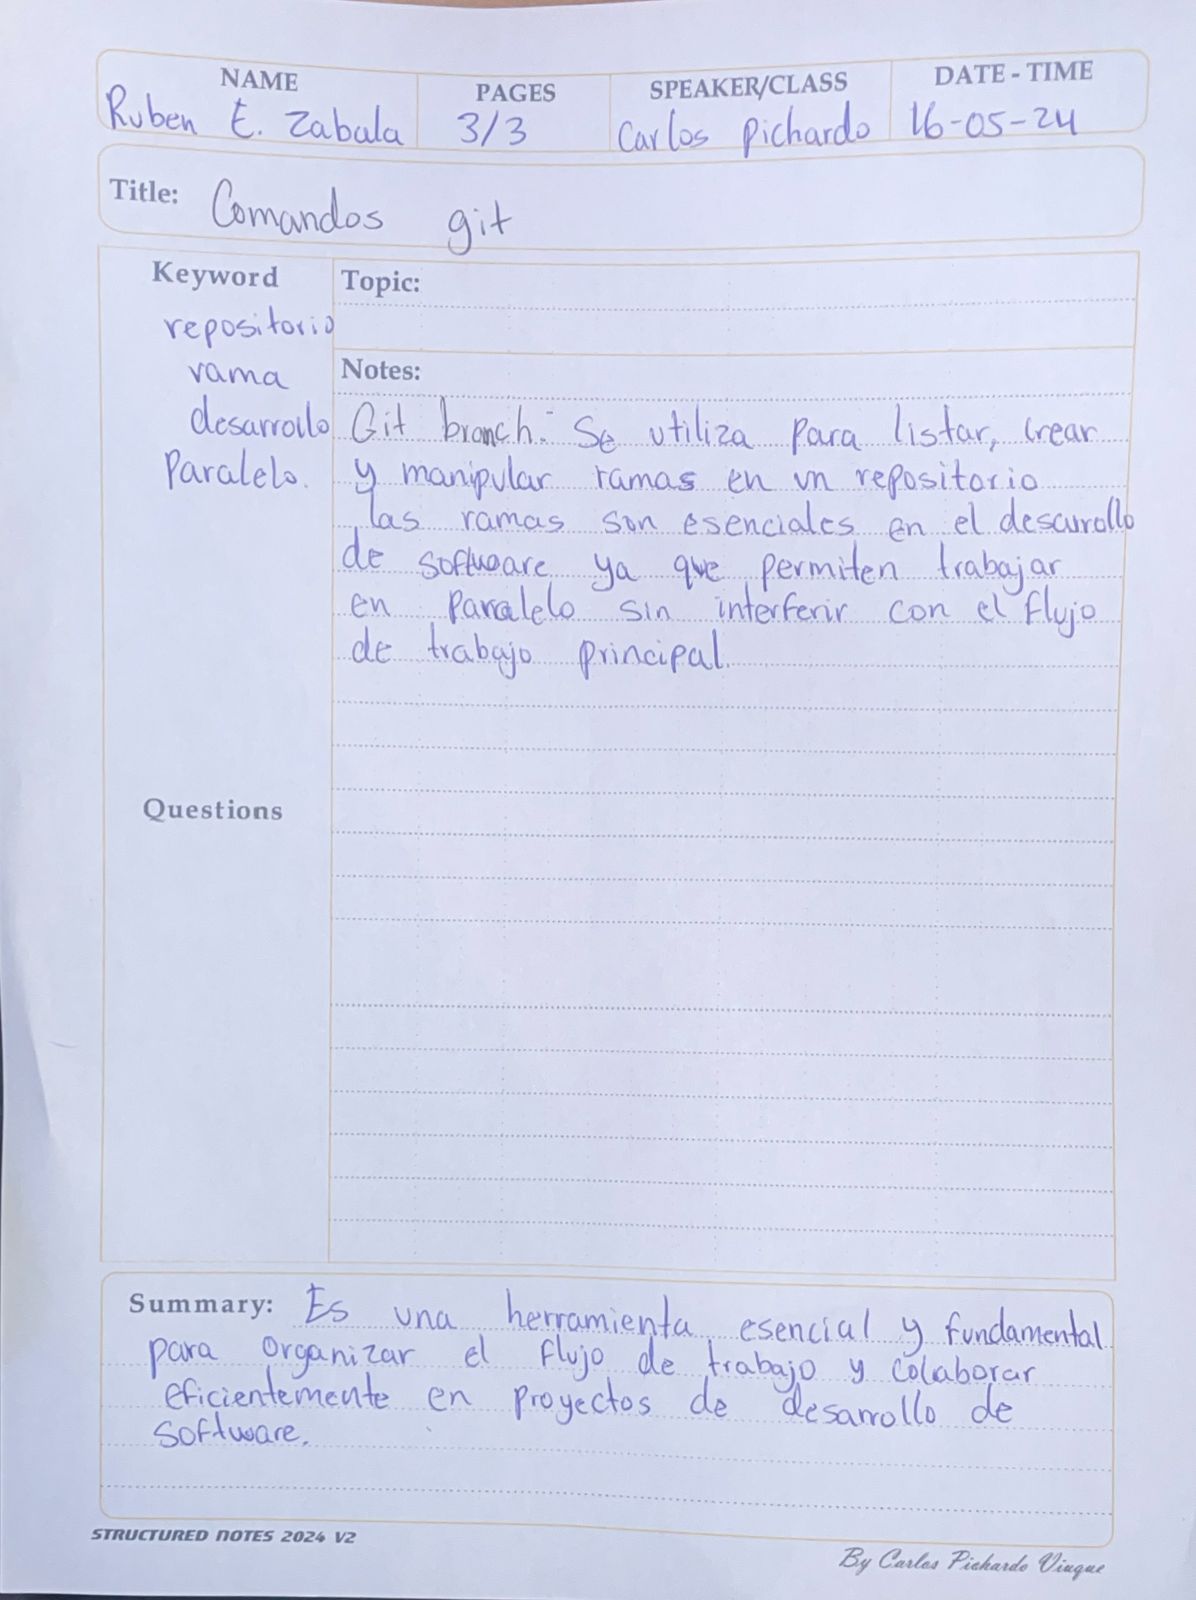 NAME PAGES SPEAKER/CLASS DATE - TIME
Ruben E. Zabala 3/3 Carlos Pichardo 16-05-24
Title: Comandos git
Keyword
repositorio
rama
desarrollo
Paralelo.
Topic:
Notes:
Git branch: Se utiliza para listar, crear
y manipular ramas en un repositorio
las ramas son esenciales en el desarrollo
de software ya que permiten trabajar
en paralelo sin interferir con el flujo
de trabajo principal.
Questions
Summary: Es una herramienta esencial y fundamental
para organizar el flujo de trabajo y colaborar
eficientemente en proyectos de desarrollo de
software.
STRUCTURED NOTES 2024 V2
By Carlos Pichardo Viuque